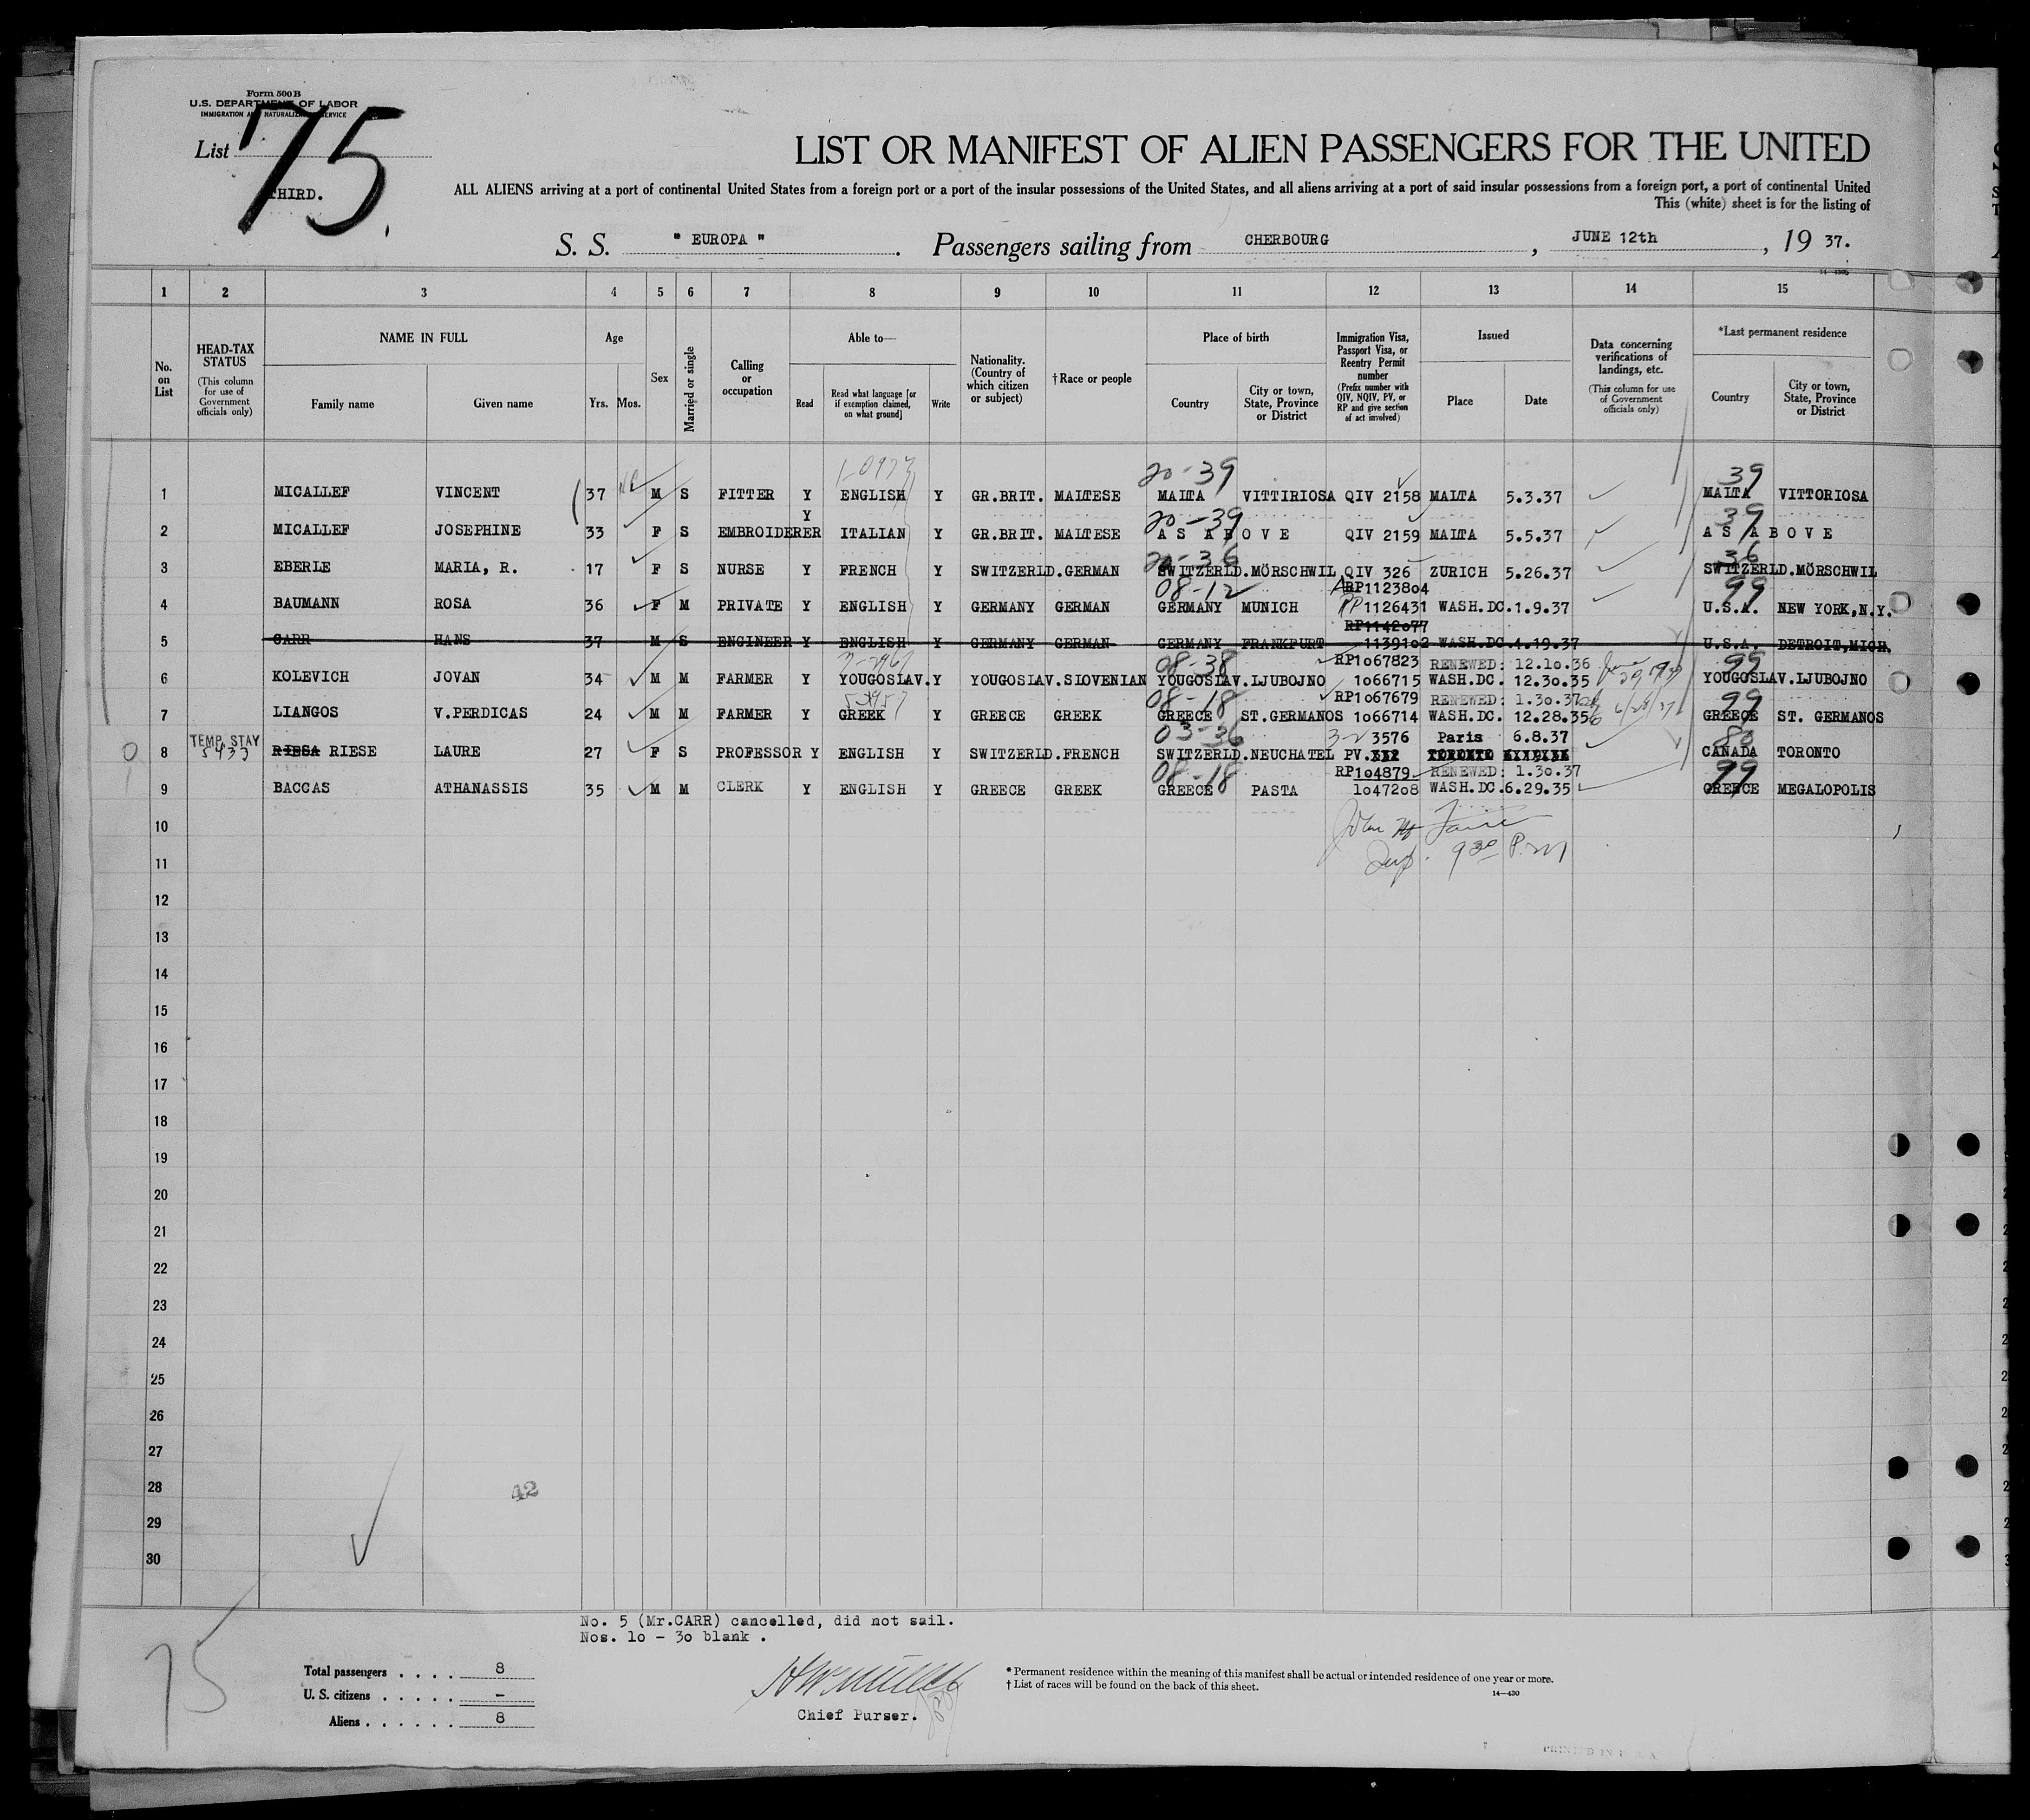 Form 500 B
U.S. DEPARTMENT OF LABOR
IMMIGRATION AND NATURALIZATION SERVICE
List 75.
THIRD.
LIST OR MANIFEST OF ALIEN PASSENGERS FOR THE UNITED
ALL ALIENS arriving at a port of continental United States from a foreign port or a port of the insular possessions of the United States, and all aliens arriving at a port of said insular possessions from a foreign port, a port of continental United
This (white) sheet is for the listing of
S. S. " EUROPA ". Passengers sailing from CHERBOURG, JUNE 12th, 19 37.
1 2 3 4 5 6 7 8 9 10 11 12 13 14 15
No. on List
HEAD-TAX STATUS (This column for use of Government officials only)
NAME IN FULL Family name Given name
Age Yrs. Mos.
Sex
Married or single
Calling or occupation
Able to— Read Read what language [or if exemption claimed, on what ground] Write
Nationality. (Country of which citizen or subject)
† Race or people
Place of birth Country City or town, State, Province or District
Immigration Visa, Passport Visa, or Reentry Permit number (Prefix number with QIV, NQIV, PV, or RP and give section of act involved)
Issued Place Date
Data concerning verifications of landings, etc. (This column for use of Government officials only)
*Last permanent residence Country City or town, State, Province or District
20-39 39
1 MICALLEF VINCENT 37 M S FITTER Y ENGLISH Y GR.BRIT. MALTESE MALTA VITTIRIOSA QIV 2158 MALTA 5.3.37 MALTA VITTORIOSA
Y 20-39 39
2 MICALLEF JOSEPHINE 33 F S EMBROIDERER ITALIAN Y GR.BRIT. MALTESE AS ABOVE QIV 2159 MALTA 5.5.37 AS ABOVE
20-36 36
3 EBERLE MARIA, R. 17 F S NURSE Y FRENCH Y SWITZERLD. GERMAN SWITZERLD. MÖRSCHWIL QIV 326 ZURICH 5.26.37 SWITZERLD. MÖRSCHWIL
08-12 RP1123804 99
4 BAUMANN ROSA 36 F M PRIVATE Y ENGLISH Y GERMANY GERMAN GERMANY MUNICH RP 1126431 WASH.DC. 1.9.37 U.S.A. NEW YORK,N.Y.
RP1142077
5 CARR HANS 37 M S ENGINEER Y ENGLISH Y GERMANY GERMAN GERMANY FRANKFURT 1139102 WASH.DC. 4.19.37 U.S.A. DETROIT,MICH.
08-38 RP1067823 RENEWED: 12.10.36 99
6 KOLEVICH JOVAN 34 M M FARMER Y YOUGOSLAV. Y YOUGOSLAV. SLOVENIAN YOUGOSLAV. LJUBOJNO 1066715 WASH.DC. 12.30.35 YOUGOSLAV. LJUBOJNO
08-18 RP1067679 RENEWED: 1.30.37 99
7 LIANGOS V.PERDICAS 24 M M FARMER Y GREEK Y GREECE GREEK GREECE ST.GERMANOS 1066714 WASH.DC. 12.28.35 6/28/37 GREECE ST. GERMANOS
TEMP. STAY 03-36 3-2 3576 Paris 6.8.37 80
8 5433 RIESA RIESE LAURE 27 F S PROFESSOR Y ENGLISH Y SWITZERLD. FRENCH SWITZERLD. NEUCHATEL PV. 332 TORONTO CANADA TORONTO
08-18 RP104879 RENEWED: 1.30.37 99
9 BACCAS ATHANASSIS 35 M M CLERK Y ENGLISH Y GREECE GREEK GREECE PASTA 1047208 WASH.DC. 6.29.35 GREECE MEGALOPOLIS
10
11 9 30 P.M
12
13
14
15
16
17
18
19
20
21
22
23
24
25
26
27
28 42
29
30
No. 5 (Mr.CARR) cancelled, did not sail.
Nos. 10 - 30 blank .
75
Total passengers . . . . 8
U. S. citizens . . . . . –
Aliens . . . . . . 8
Chief Purser.
* Permanent residence within the meaning of this manifest shall be actual or intended residence of one year or more.
† List of races will be found on the back of this sheet.
14—430